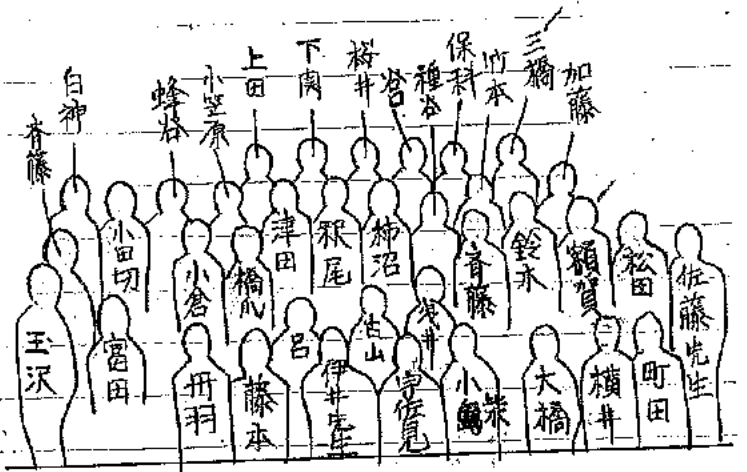 斉藤
白神
蜂谷
小笠原
上田
下関
桜井
谷口
種谷
保科
竹本
三橋
加藤
小田切
小倉
橋爪
津田
釈尾
柿沼
斉藤
鈴木
額賀
松田
佐藤先生
玉沢
富田
丹羽
藤本
呂
伊井先生
古山
宇佐見
浅井
大橋
横井
町田